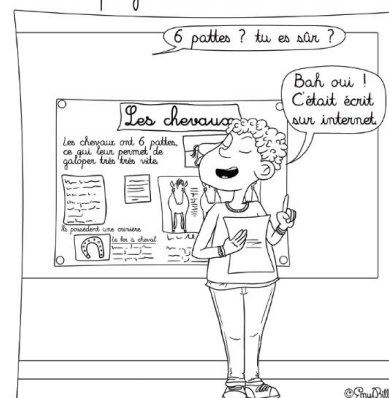 6 pattes ? tu es sûr ?
Bah oui !
C'était écrit
sur internet.
Les chevaux
Les chevaux ont 6 pattes,
ce qui leur permet de
galoper très très vite.
Ils possèdent une crinière
Le fer à cheval